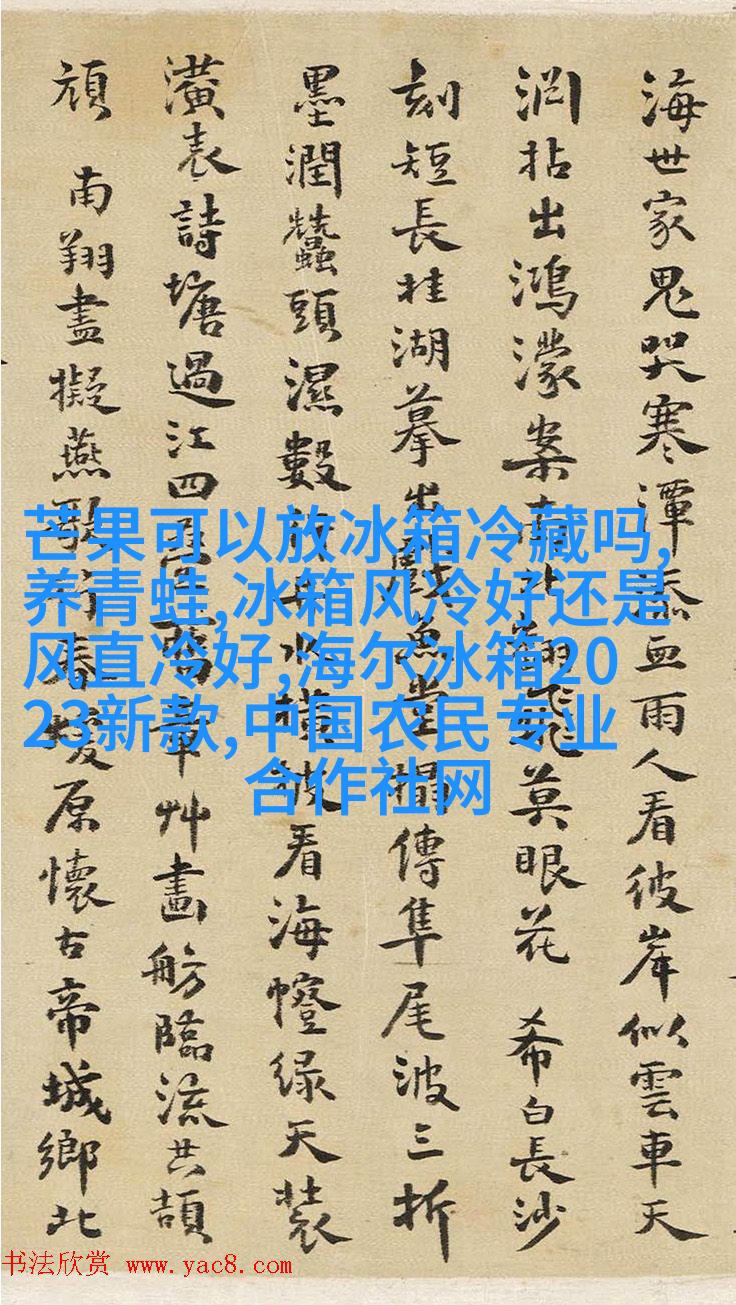 海世家鬼哭寒潭添血雨人看彼岸似雲車天
渕拈出鴻濛案頭 莫眼花 希白長沙
刻短長桂湖摹出 魚堂搨傳隼尾波三折
墨潤蠶頭濕數 橫披看海幢绿天裝
潢表詩塘過江四 章艸畫舫臨流共頡
頏 南翔盡擬燕歌行 原懷古帝城鄉北
芒果可以放冰箱冷藏吗,
养青蛙,冰箱风冷好还是
风直冷好,海尔冰箱20
23新款,中国农民专业
合作社网
书法欣赏 www.yac8.com